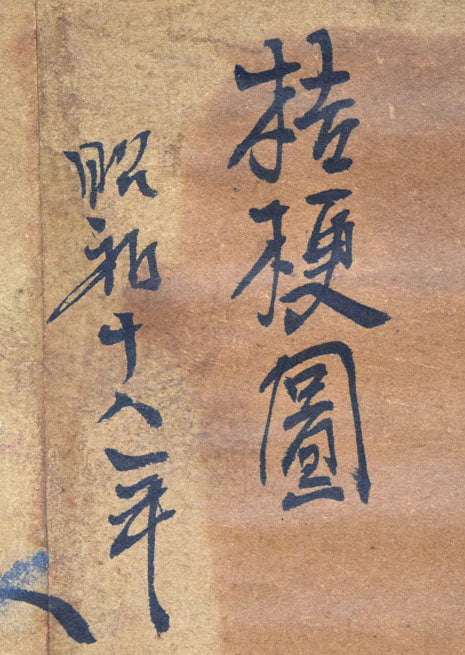 桔梗圖
昭和十八年